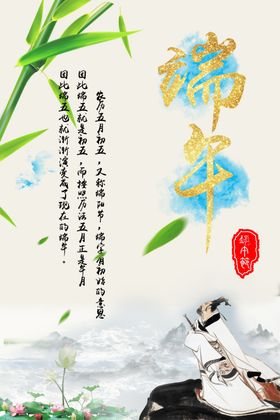 端午
端午节
农历五月初五，又称端阳节，端字有初始的意思
因此端五就是初五，而按照历法五月正是午月
因此端五也就渐渐演变成了现在的端午。